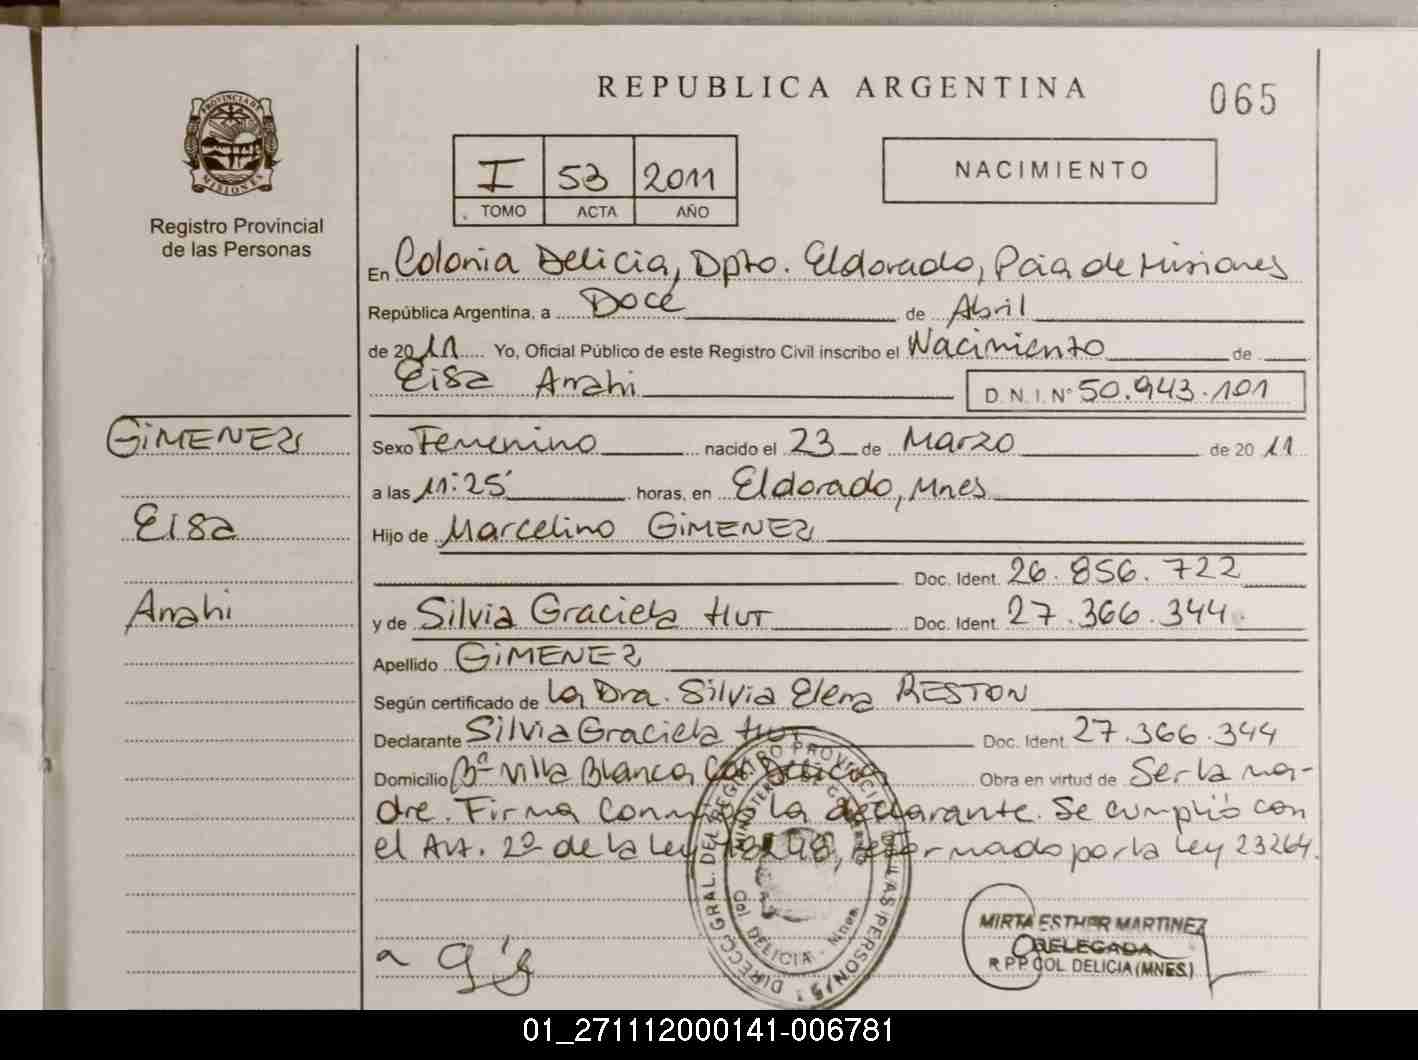 REPUBLICA ARGENTINA
065
PROVINCIA DE
MISIONES
Registro Provincial
de las Personas
I 53 2011
TOMO ACTA AÑO
NACIMIENTO
En Colonia Delicia, Dpto. Eldorado, Pcia de Misiones
República Argentina, a Doce de Abril
de 2011 Yo, Oficial Público de este Registro Civil inscribo el Nacimiento de
Elsa Anahi D.N.I. Nº 50.943.101
GIMENEZ
Elsa
Anahi
Sexo Femenino nacido el 23 de Marzo de 2011
a las 11:25' horas, en Eldorado, Mnes
Hijo de Marcelino GIMENEZ
Doc. Ident. 26.856.722
y de Silvia Graciela HUT Doc. Ident. 27.366.344
Apellido GIMENEZ
Según certificado de la Dra. Silvia Elena RESTON
Declarante Silvia Graciela HUT Doc. Ident. 27.366.344
Domicilio Bº Villa Blanca Col Delicia Obra en virtud de Ser la ma-
dre. Firma Conmigo la declarante. Se cumplió con
el Art. 2º de la Ley 18248, reformado por la Ley 23264.
DIRECC. GRAL. DEL REGISTRO PROVINCIAL DE LAS PERSONAS
MINISTERIO DE GOBIERNO
Col. DELICIA - Mnes
MIRTA ESTHER MARTINEZ
DELEGADA
R.P.P. COL DELICIA (MNES)
01_271112000141-006781